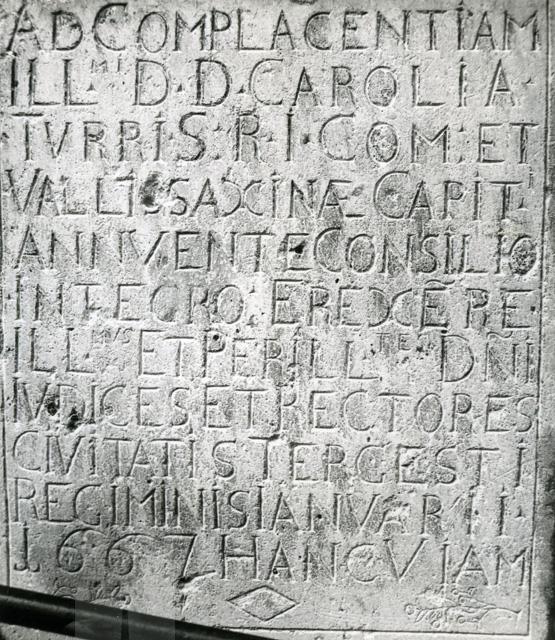 AD COMPLACENTIAM
ILL.MI D. D. CAROLI A
TVRRI S. R. I. COM. ET
VALLIS SAXINÆ CAPIT.I
ANNVENTE CONSILIO
INTEGRO EREXERE
ILL.MVS ET PERILL.TES DÑI
IVDICES ET RECTORES
CIVITATIS TERGESTI
REGIMINIS IANVARII
1667 HANC VIAM